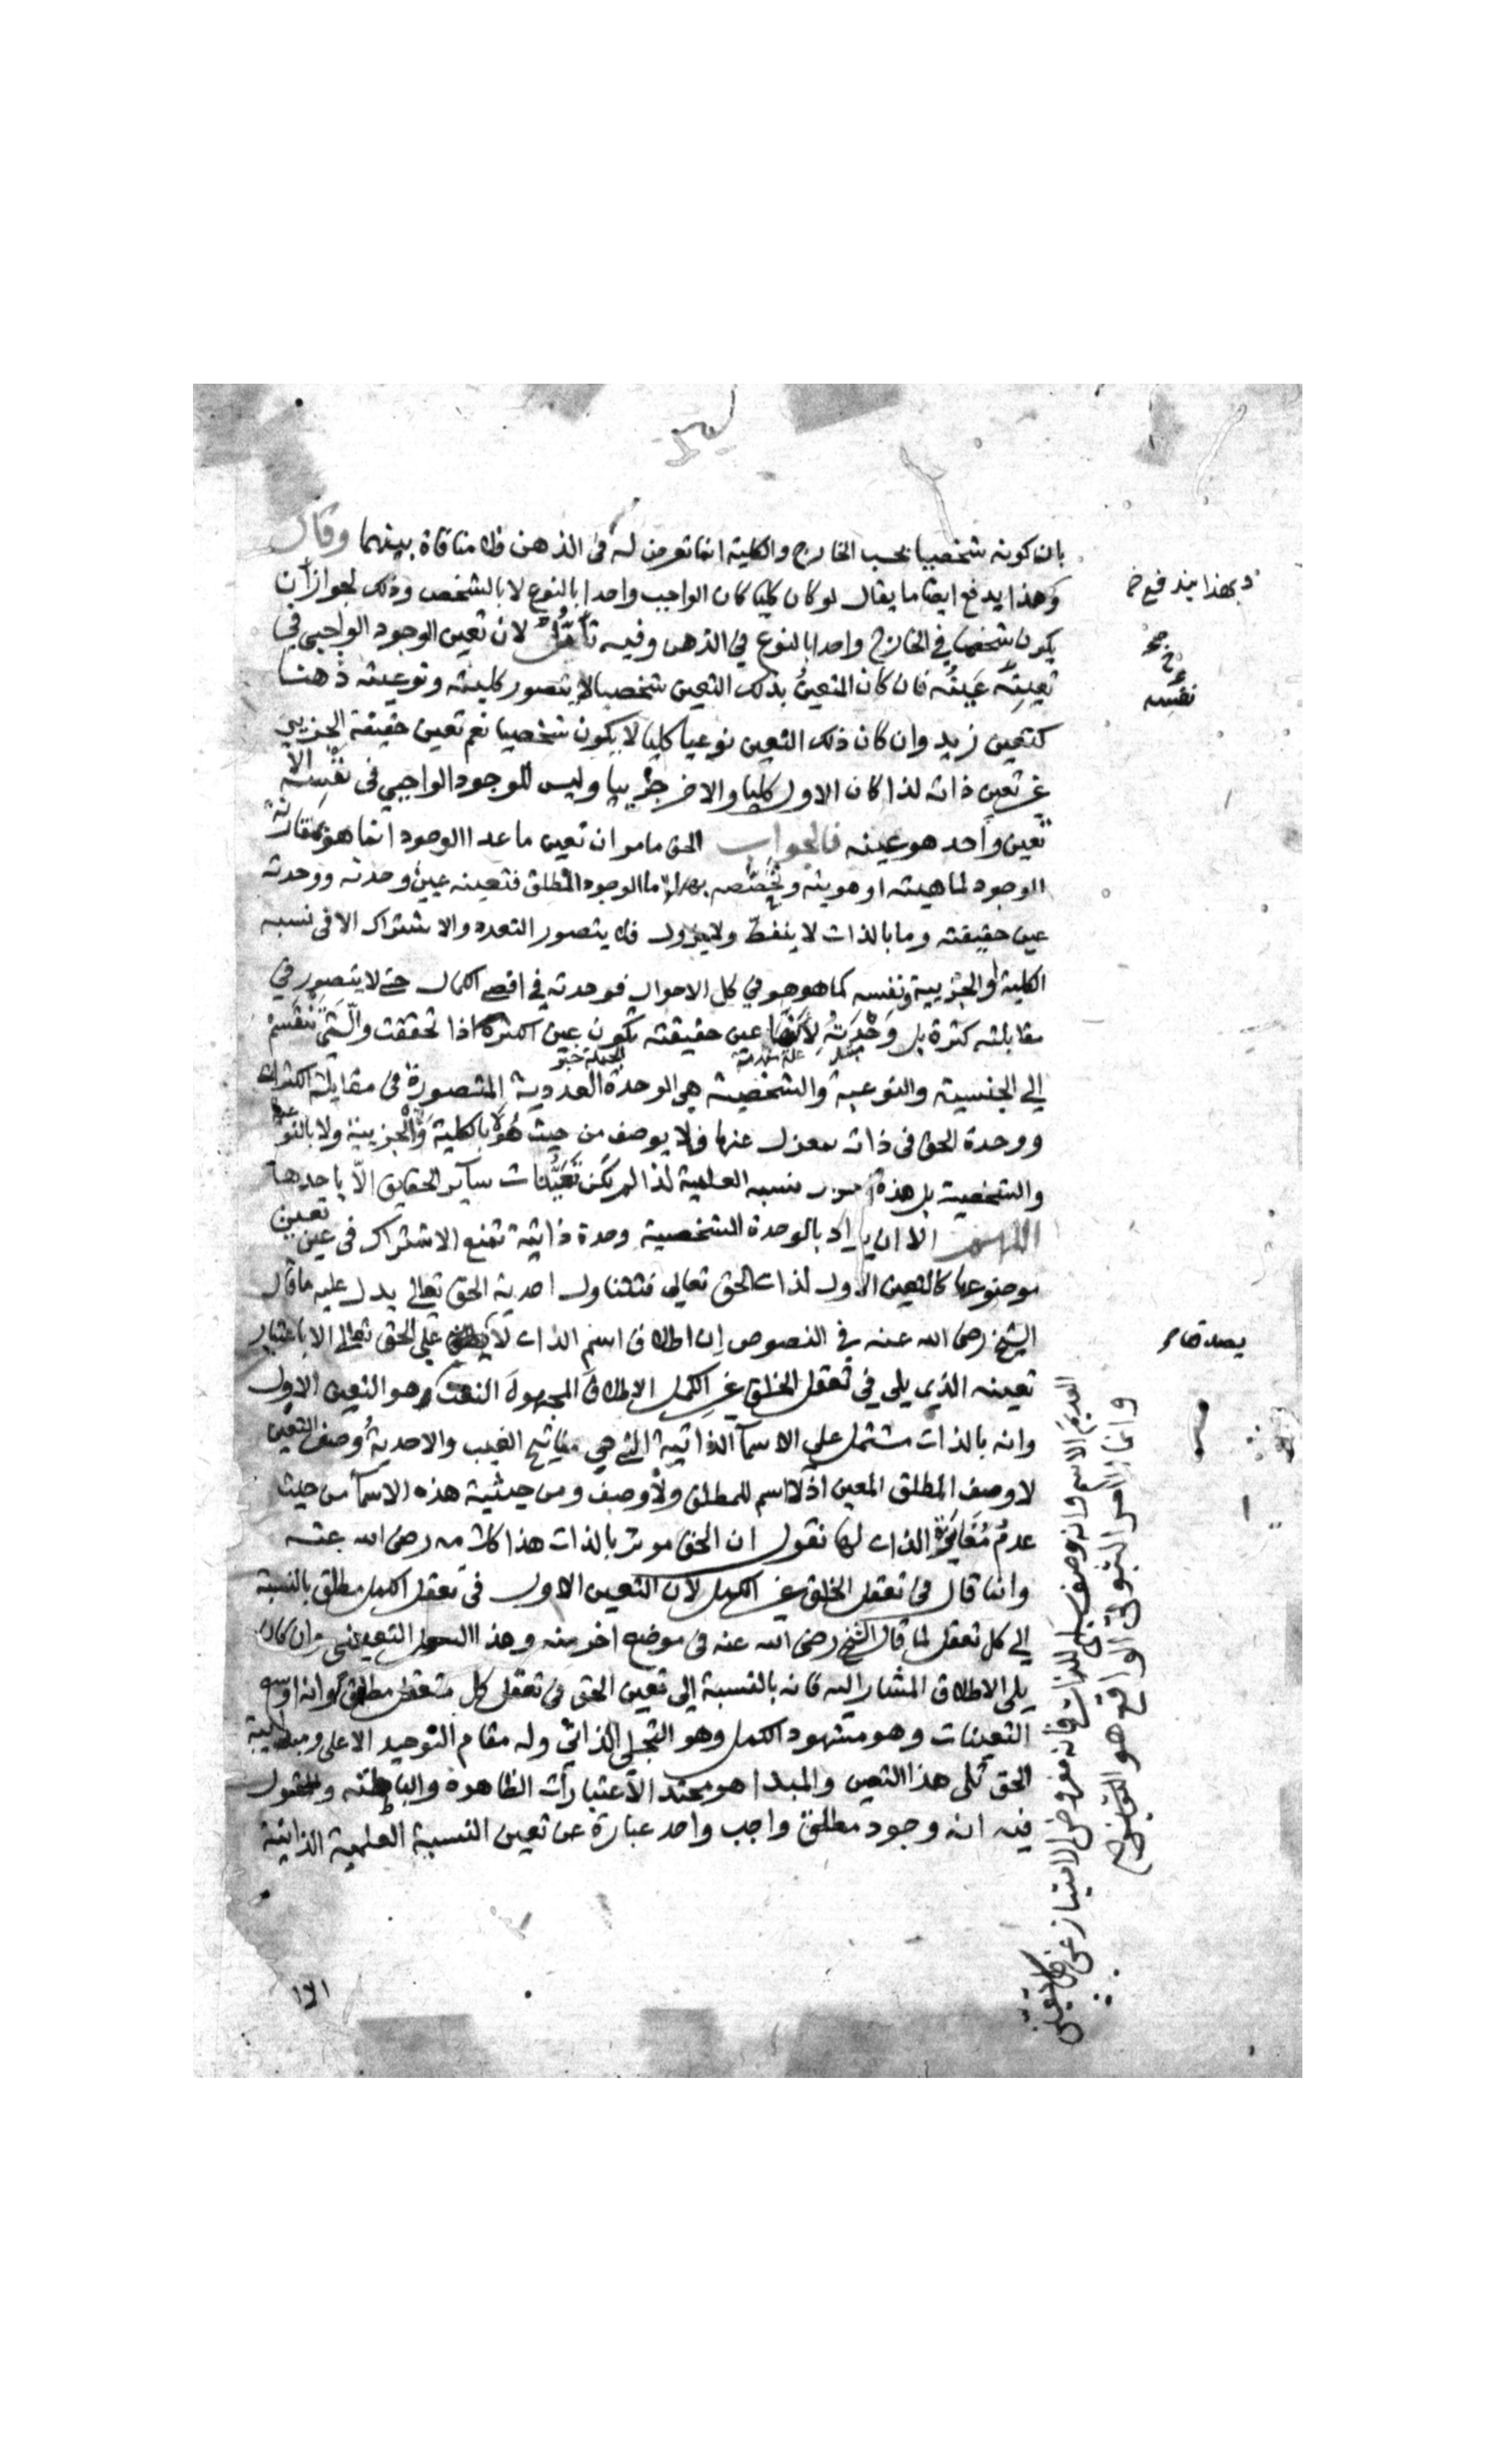 بان كونه شخصيا بحسب الخارج والكلية انما تعرض له في الذهن فلا منافاة بينهما وقال
وهذا يدفع ايضا ما يقال لو كان كليا كان الواجب واحدا بالنوع لا بالشخص وذلك لجواز ان
يكون شخصا في الخارج واحدا بالنوع في الذهن وفيه تأمل لان تعين الوجود الواجبي في
تعينه عينه فان كان المتعين بذلك التعين شخصيا لا يتصور كليته ونوعيته ذهنا
كتعين زيد وان كان ذلك التعين نوعيا كليا لا يكون شخصيا نعم تعين حقيقة الجزيي
غير تعين ذاته لذا كان الاول كليا والاخر جزييا وليس للوجود الواجبي في نفسه الا
تعين واحد هو عينه فالجواب الحق ما مر ان تعين ما عدا الوجود انما هو بمقارنة
الوجود لماهيته او هويته وتخصصه بها اما الوجود المطلق فتعينه عين وحدته ووحدته
عين حقيقته وما بالذات لا ينفك ولا يزول فلا يتصور التعدد والاشتراك الا في نسبه
الكلية او الجزيية ونفسه كما هو هو في كل الاحوال فوحدته في اقصى الكمال حتى لا يتصور في
مقابلته كثرة بل وحدته لانها عين حقيقته تكون عين الكثرة اذا تحققت والتي تنقسم
علة مقدمة
الجملة خبر
الى الجنسية والنوعية والشخصية هي الوحدة العددية المتصورة في مقابلة الكثرات
ووحدة الحق في ذاته بمعزل عنها فلا يوصف من حيث هو لا بالكلية والجزيية ولا بالنوعية
والشخصية بل هذه نسبه العلمية لذا لم تكن تعينات سائر الحقايق الا باحدها
اللهم الا ان يراد بالوحدة الشخصية وحدة ذاتية تمنع الاشتراك في عين تعين
موضوعها كالتعين الاول لذات الحق تعالى فتتناول احدية الحق تعالى يدل عليه ما قال
الشيخ رضى الله عنه في النصوص ان اطلاق اسم الذات لا يصدق على الحق تعالى الا باعتبار
تعينه الذي يلي في تعقل الخلق غير الكمل الاطلاق المجهول النعت وهو التعين الاول
وانه بالذات مشتمل على الاسما الذاتية التي هي مفاتيح الغيب والاحدية وصف التعين
لا وصف المطلق المعين اذ لا اسم للمطلق ولا وصف ومن حيثية هذه الاسما من حيث
عدم مغايرة الذات لها نقول ان الحق موثر بالذات هذا كلامه رضى الله عنه
وانما قال في تعقل الخلق غير الكمل لان التعين الاول في تعقل الكمل مطلق بالنسبة
الى كل تعقل لما قال الشيخ رضى الله عنه في موضع اخر منه وهذا التعين وان كان
يلي الاطلاق المشار اليه فانه بالنسبة الى تعين الحق في تعقل كل متعقل مطلق وانه اوسع
التعينات وهو مشهود الكمل وهو التجلي الذاتي وله مقام التوحيد الاعلى ومبدئية
الحق تلى هذا التعين والمبدا هو محتد الاعتبارات الظاهرة والباطنة والمقول
فيه انه وجود مطلق واجب واحد عبارة عن تعين النسبة العلمية الذاتية
وبهذا يندفع خ
نفسه
يصدق
العديم الاسم وانه وصف سلبي للذات فانه مفروض الامتياز عن كل تعين
وانما الامر الثبوتي الواقع هو
الا